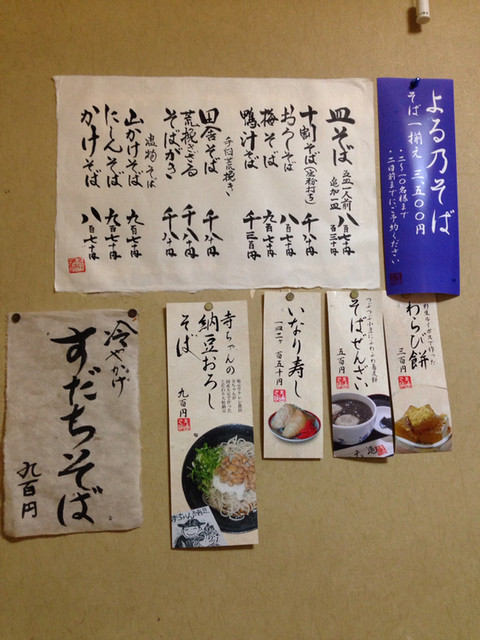 皿そば 五皿一人前 八百七十円
追加一皿 百三十円
十割そば(生粉打ち) 千八十円
おろしそば 八百七十円
梅そば 九百七十円
鴨汁そば 千三百円
手臼荒挽き
田舎そば 千八十円
荒挽きざる 千八十円
そばがき 千八十円
温物そば
山かけそば 九百七十円
にしんそば 九百七十円
かけそば 八百七十円
よる乃そば
そば一揃え 三五〇〇円
・二〜一〇名様まで
・二日前までにご予約ください
冷やかけ
すだちそば
九百円
寺ちゃんの
納豆おろし
そば
九百円
いなり寿し
一皿二ヶ 百五十円
つぶつぶ小豆にふわふわ蕎麦餅
そばぜんざい
五百円
わらび餅
三百円